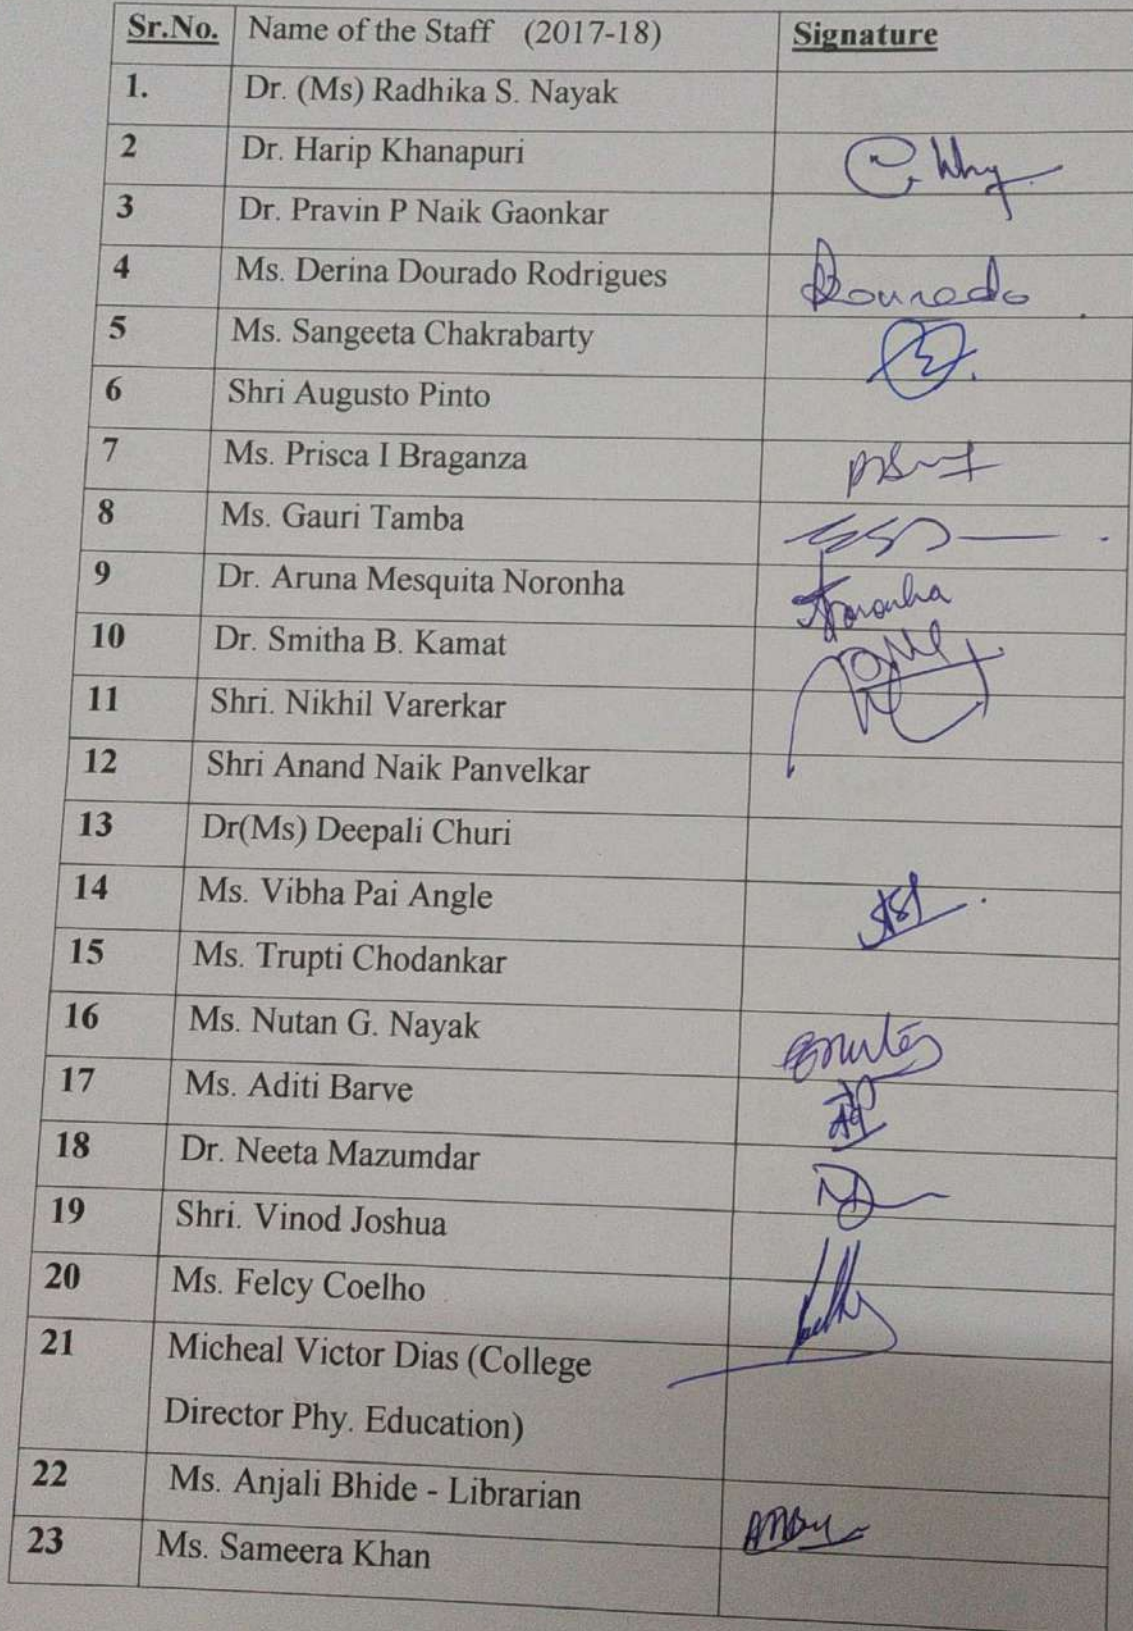 Sr.No. Name of the Staff (2017-18) Signature
1. Dr. (Ms) Radhika S. Nayak
2 Dr. Harip Khanapuri
3 Dr. Pravin P Naik Gaonkar
4 Ms. Derina Dourado Rodrigues Dourado
5 Ms. Sangeeta Chakrabarty
6 Shri Augusto Pinto
7 Ms. Prisca I Braganza
8 Ms. Gauri Tamba
9 Dr. Aruna Mesquita Noronha Noronha
10 Dr. Smitha B. Kamat
11 Shri. Nikhil Varerkar
12 Shri Anand Naik Panvelkar
13 Dr(Ms) Deepali Churi
14 Ms. Vibha Pai Angle
15 Ms. Trupti Chodankar
16 Ms. Nutan G. Nayak
17 Ms. Aditi Barve
18 Dr. Neeta Mazumdar
19 Shri. Vinod Joshua
20 Ms. Felcy Coelho
21 Micheal Victor Dias (College
Director Phy. Education)
22 Ms. Anjali Bhide - Librarian
23 Ms. Sameera Khan